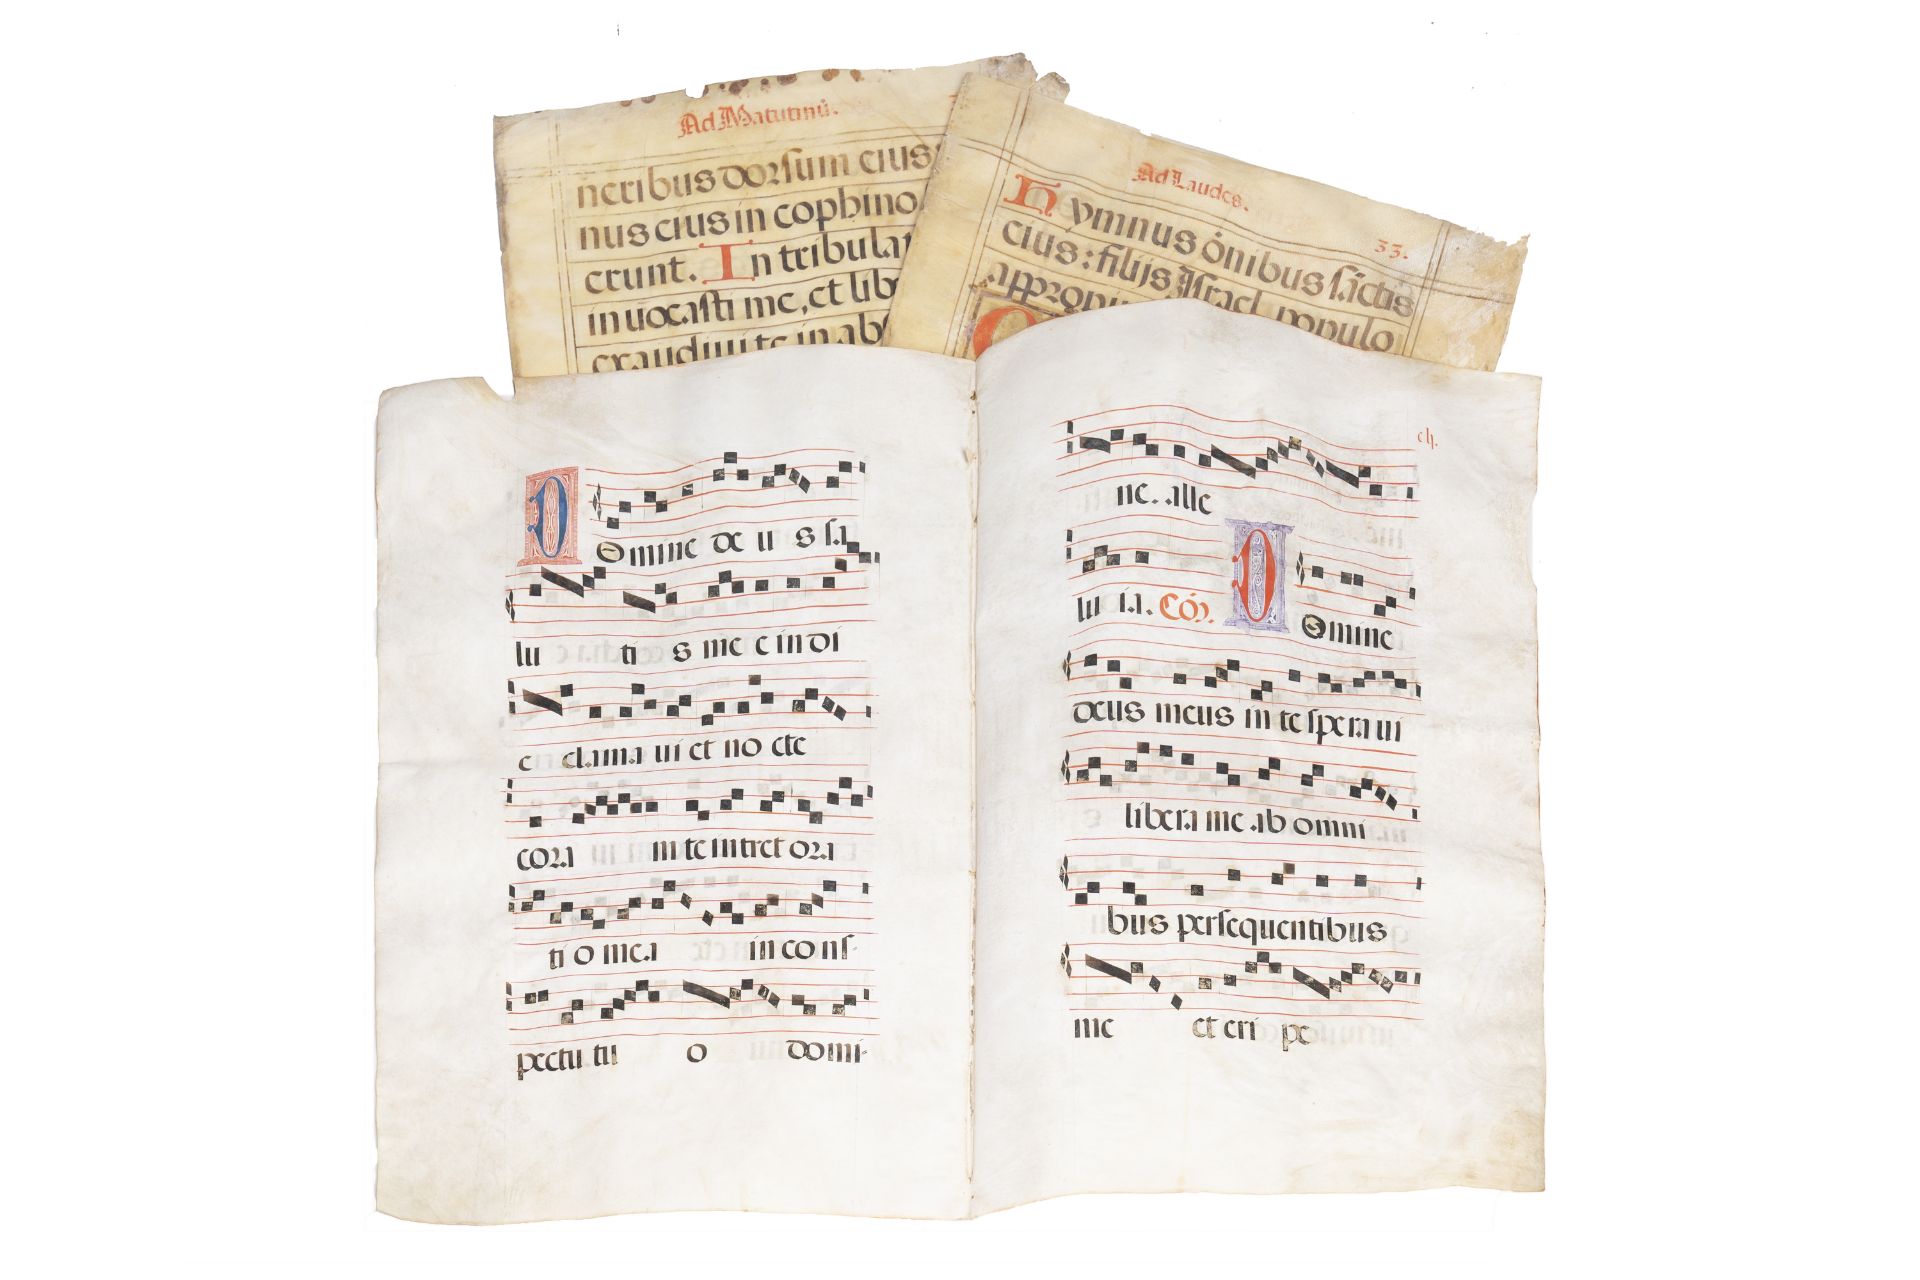 Ad Matutinũ.
neribus dorsum eius:
nus eius in cophino
erunt. In tribulat
inuocasti me, et libe
exaudiui te in abs
Ad Laudes.
33.
Hymnus õnibus sãctis
eius: filijs Israel populo
appropin
Domine de u s sa
lu ti s me e in di
e clama ui et no cte
cora in te intret ora
ti o mea in cons-
pectu tu o domi-
ch.
ne. alle
lu ia. Cõ. Domine
deus meus in te spera ui
libera me ab omni
bus persequentibus
me et eri pe